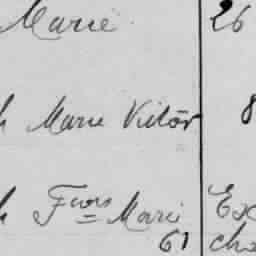 Marie 26
h Marie Victor 8
h Fcois Marie Ex
61